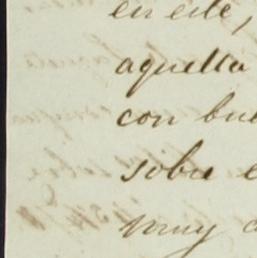 en este,
aquella
con bue
sobre e
muy c